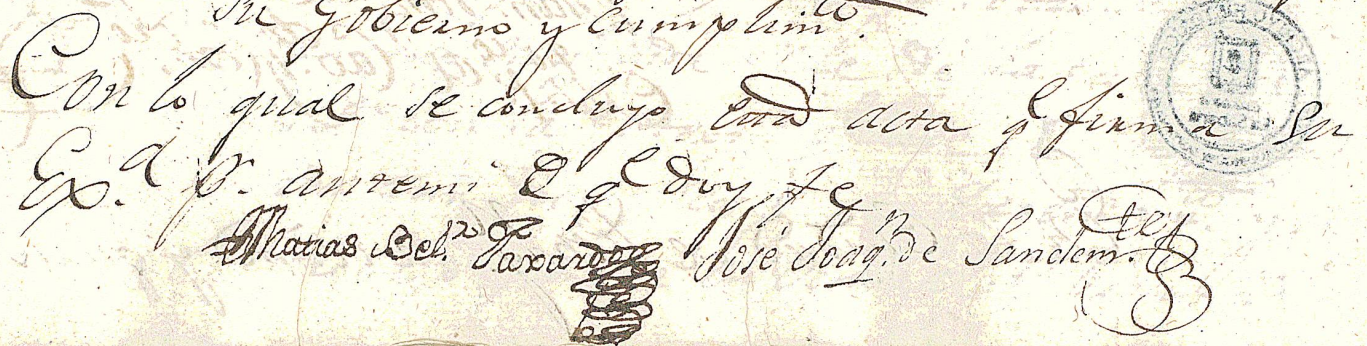 su Gobierno y Cumplimto.
Con lo qual se concluyo esta acta q.e firma su
Ex.a p.r antemi de q.e doy fe
Matias Bel.no Paxardo José Joaq.n de Sandem.tes